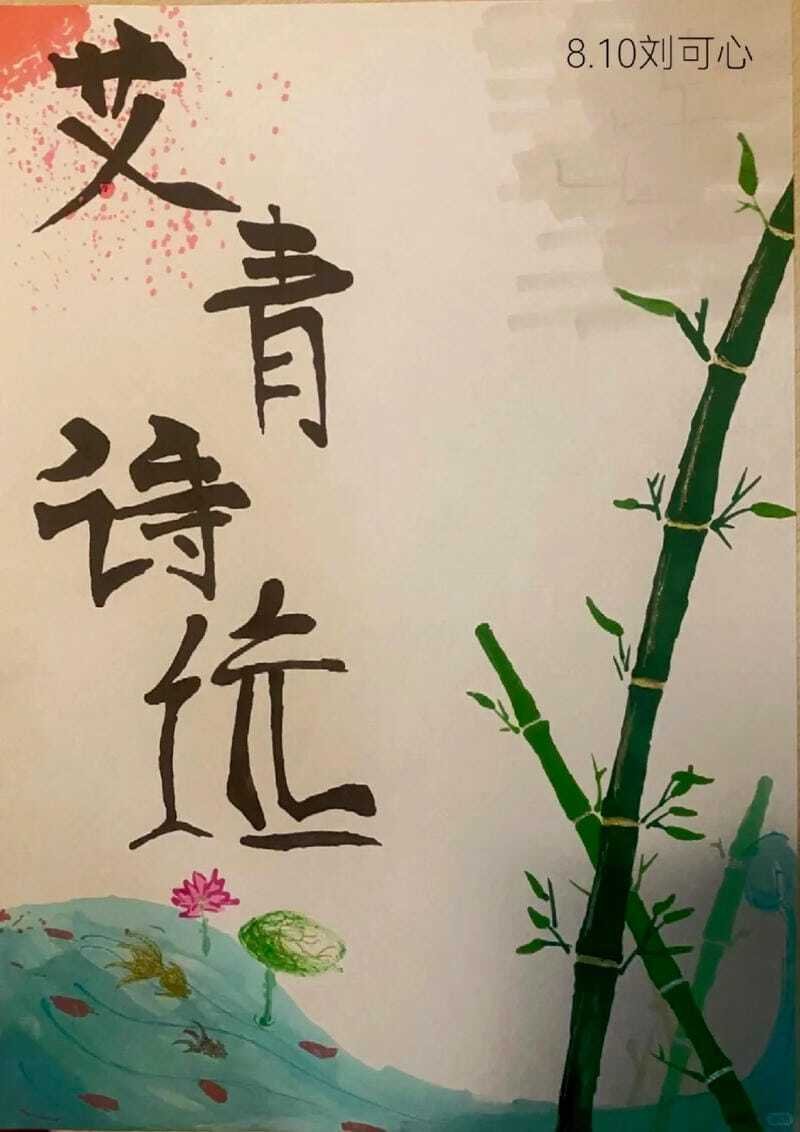 8.10刘可心
艾青诗选